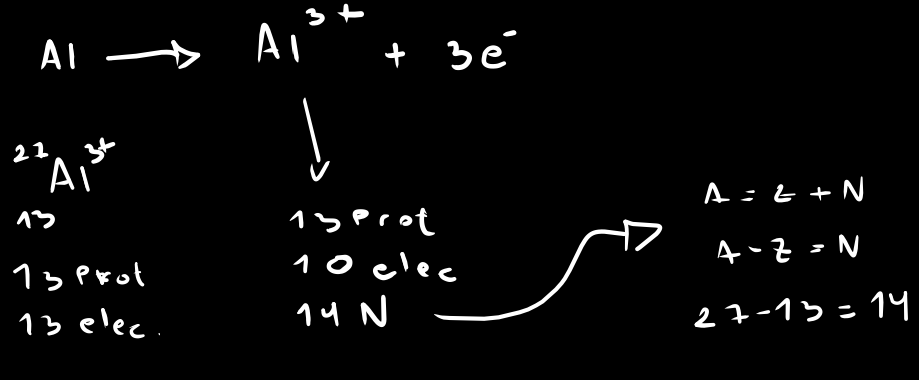 Al → Al³⁺ + 3e⁻
²⁷Al³⁺
13
13 Prot
13 elec.
13 Prot
10 elec
14 N
A = Z + N
A - Z = N
27 - 13 = 14